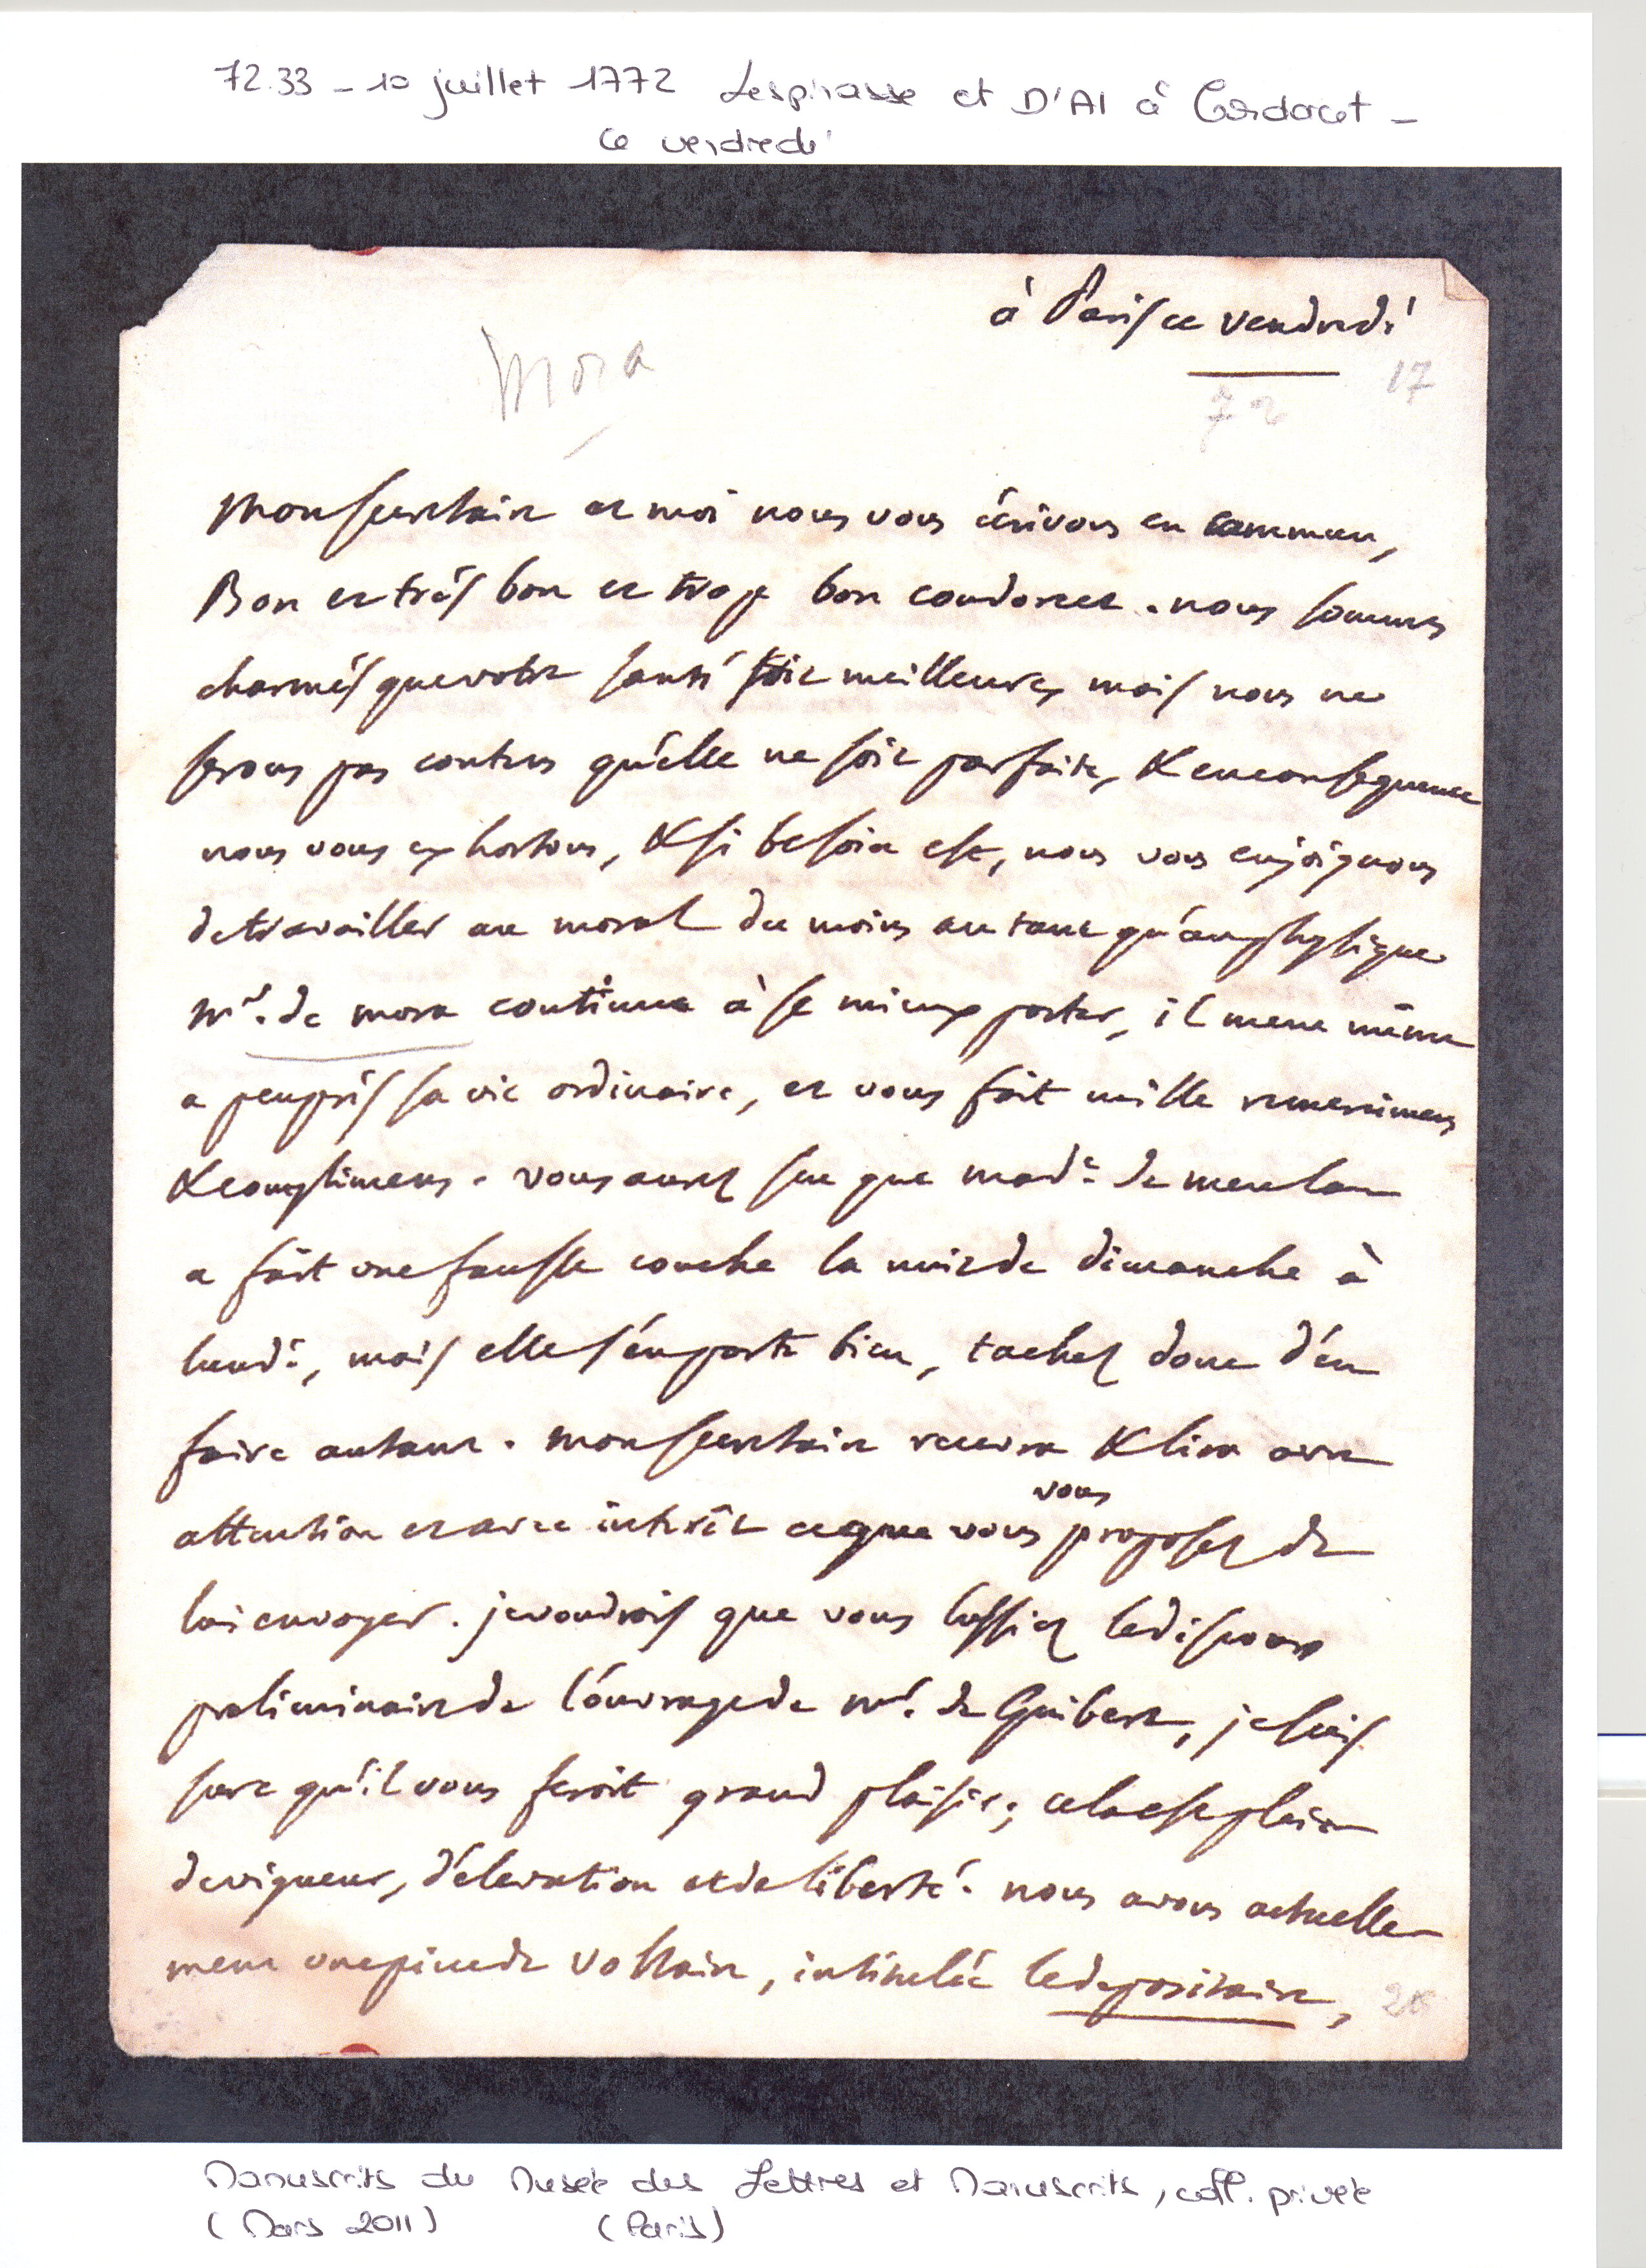 72.33 - 10 juillet 1772 Lespinasse et D'Al à Condorcet -
ce vendredi
à Paris ce vendredi
17
72
Mora
mon secretaire et moi nous vous écrivons en commun,
Bon et trés bon et trop bon condorcet. nous sommes
charmés que votre santé soit meilleure, mais nous ne
serons pas contens qu'elle ne soit parfaite, & en consequence
nous vous exhortons, & si besoin est, nous vous enjoignons
de travailler au moral du moins autant qu'au physique
mr. de mora continue à se mieux porter, il mene même
a peu prés sa vie ordinaire, et vous fait mille remercimens
& complimens. vous aurez su que made de meulan
a fait une fausse couche la nuit de dimanche à
lundi, mais elle s'en porte bien, tachez donc d'en
faire autant. mon secretaire recevra & lira avec
vous
attention et avec intérêt ce que vous proposez de
lui envoyer. je voudrois que vous lussiez le discours
preliminaire de l'ouvrage de mr. de Guibert, je suis
sure qu'il vous feroit grand plaisir; cela est plein
de vigueur, d'élevation et de liberté. nous avons actuelle-
ment une piece de Voltaire, intitulée le depositaire,
Manuscrits du Musée des Lettres et Manuscrits, coll. privée
(Mars 2011) (Paris)